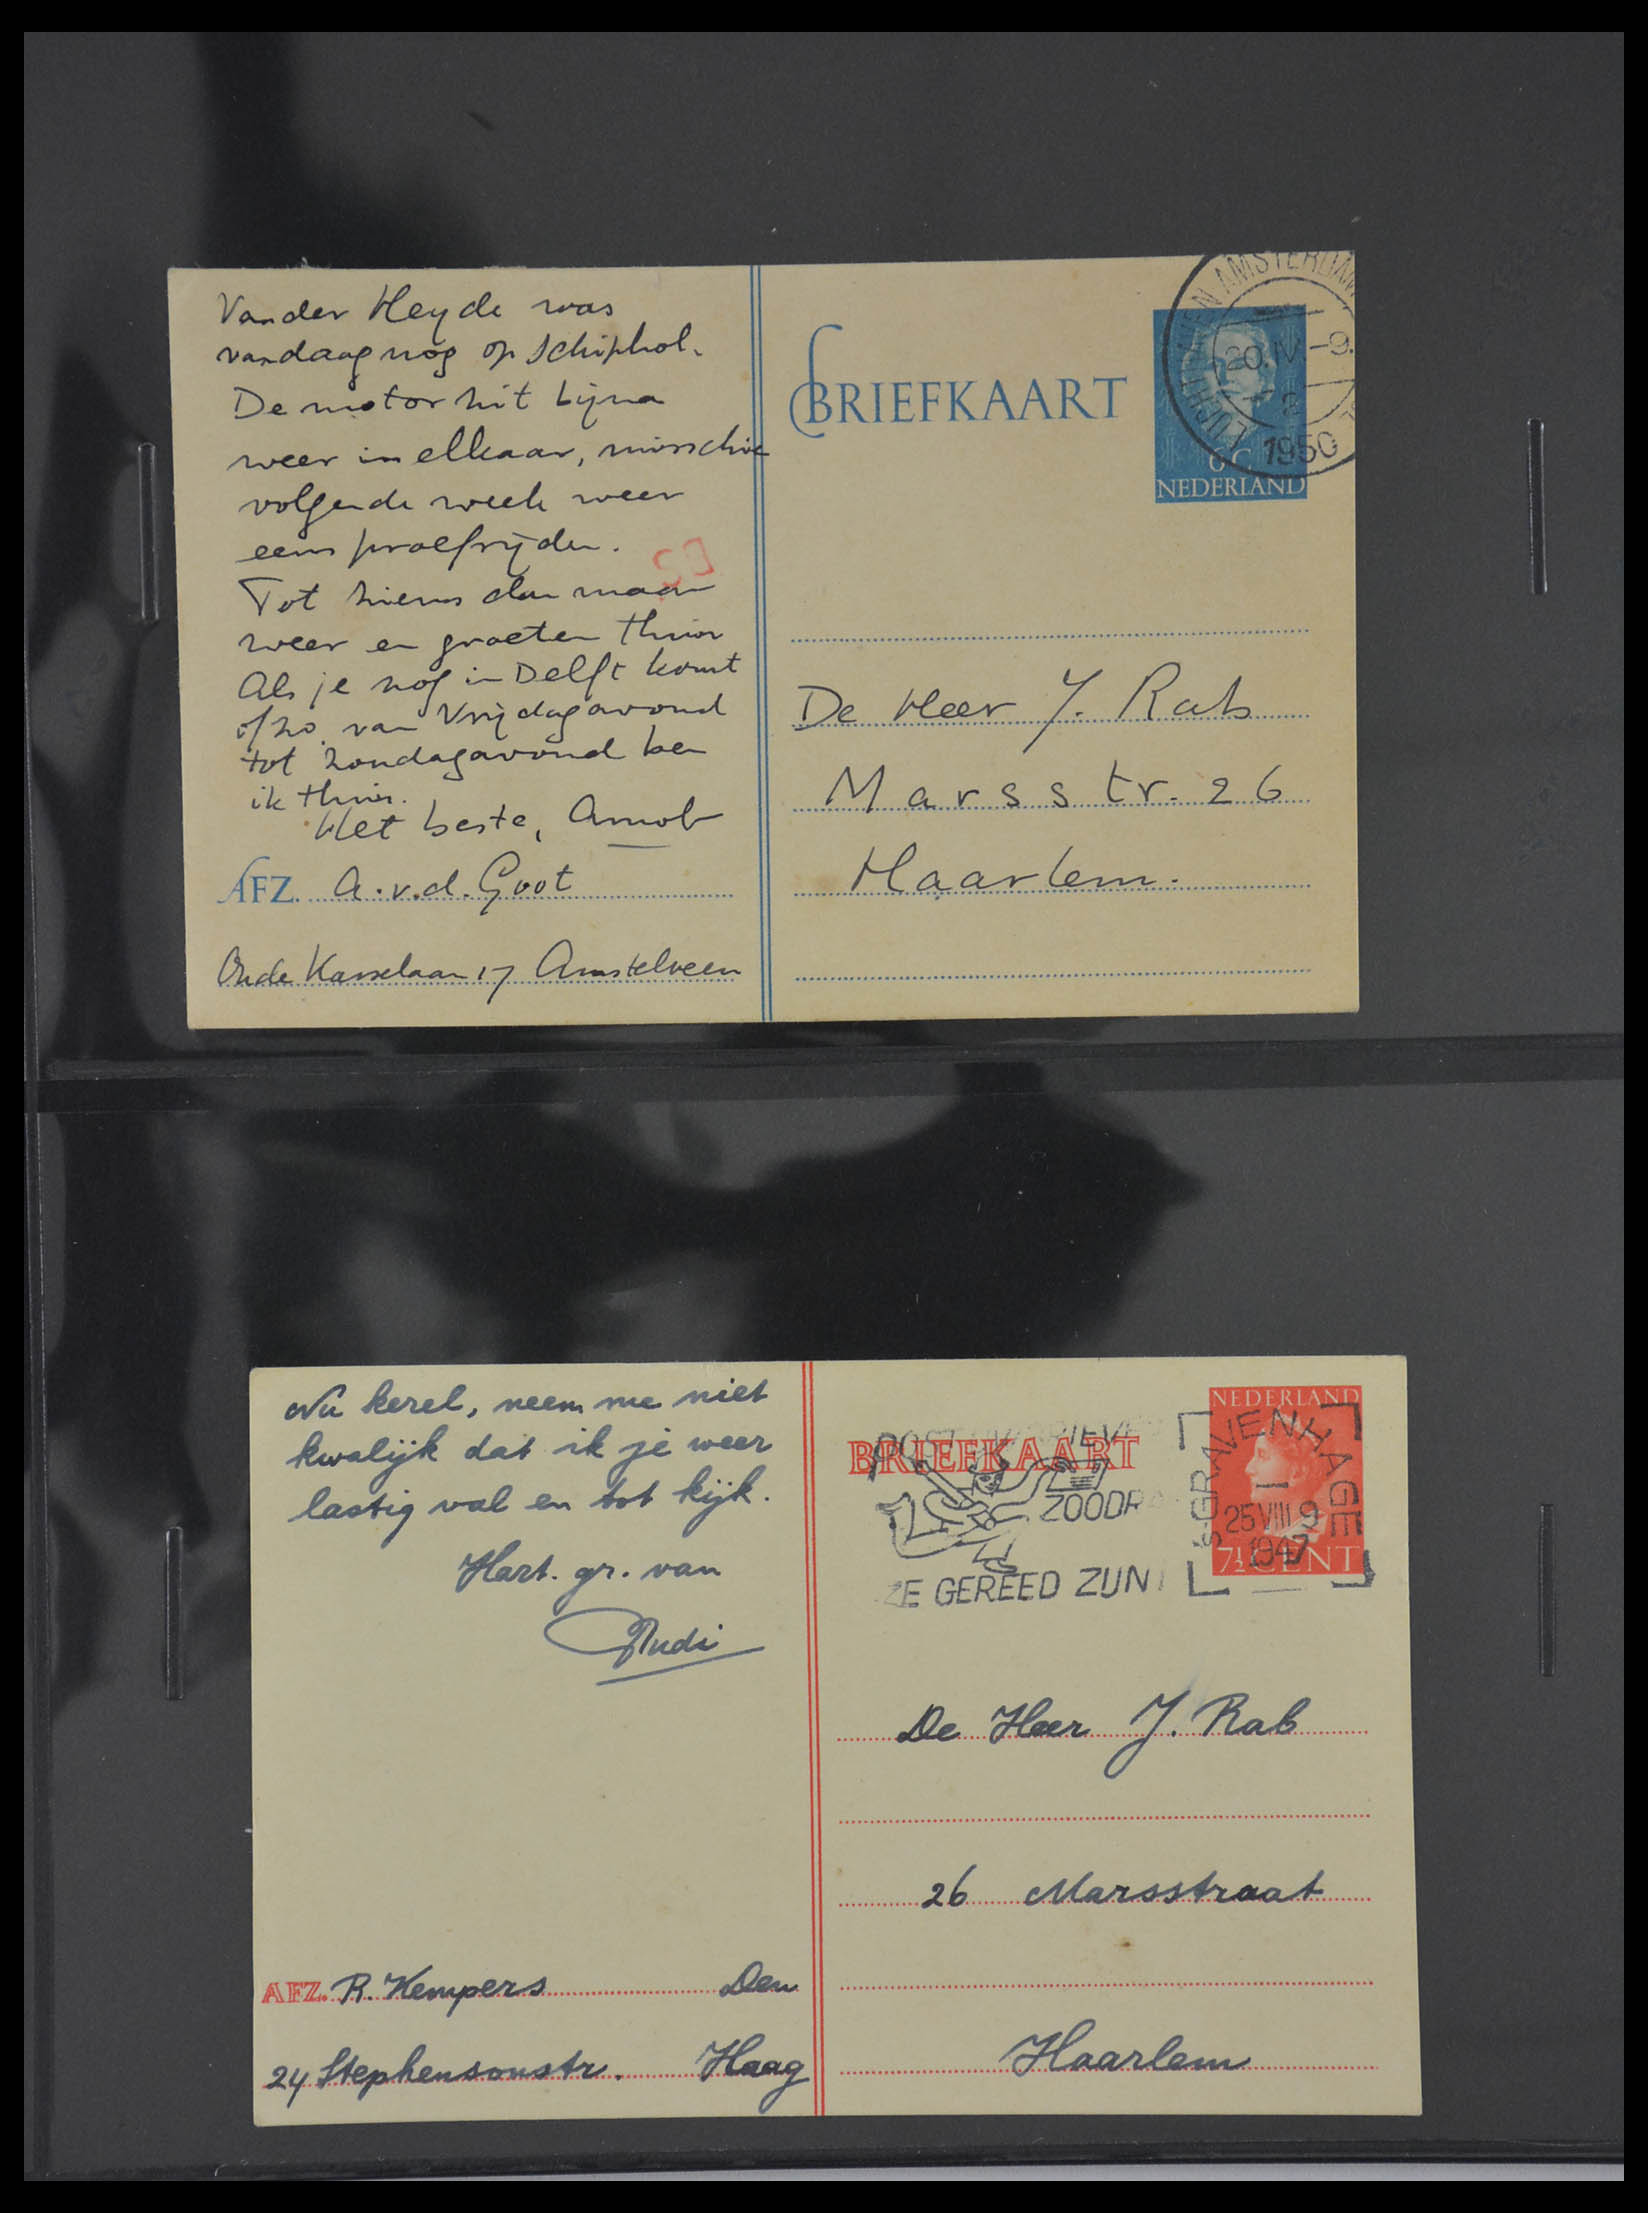 Van der Heyde was
vandaag nog op Schiphol.
De motor zit bijna
weer in elkaar, misschie
volgende week weer
eens proefrijden.
Tot ziens dan maar
weer en groeten thuis
Als je nog in Delft komt
o/zo. van Vrijdagavond
tot zondagavond ben
ik thuis.
Het beste, Arnob
AFZ. A. v. d. Goot
Oude Karselaan 17 Amstelveen
BRIEFKAART
AMSTERDAM
20.IV -9.
1950
6 C
NEDERLAND
De Heer J. Rab
Marsstr. 26
Haarlem.
Nu kerel, neem me niet
kwalijk dat ik je weer
lastig val en tot kijk.
Hart. gr. van
Rudi
AFZ. R. Kempers Den
24 Stephensonstr. Haag
BRIEFKAART
POST
ZOODR
ZE GEREED ZIJN
NEDERLAND
'S-GRAVENHAGE
25 VIII 9
1947
7½ CENT
De Heer J. Rab
26 Marsstraat
Haarlem